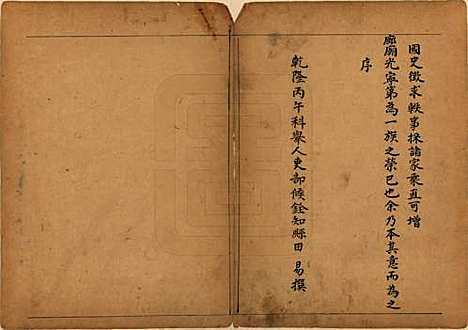 國史徵求軼事採諸家乘直可增
廊廟光寧第為一族之榮已也余乃本其意而為之
序
乾隆丙午科舉人吏部候銓知縣田 易撰